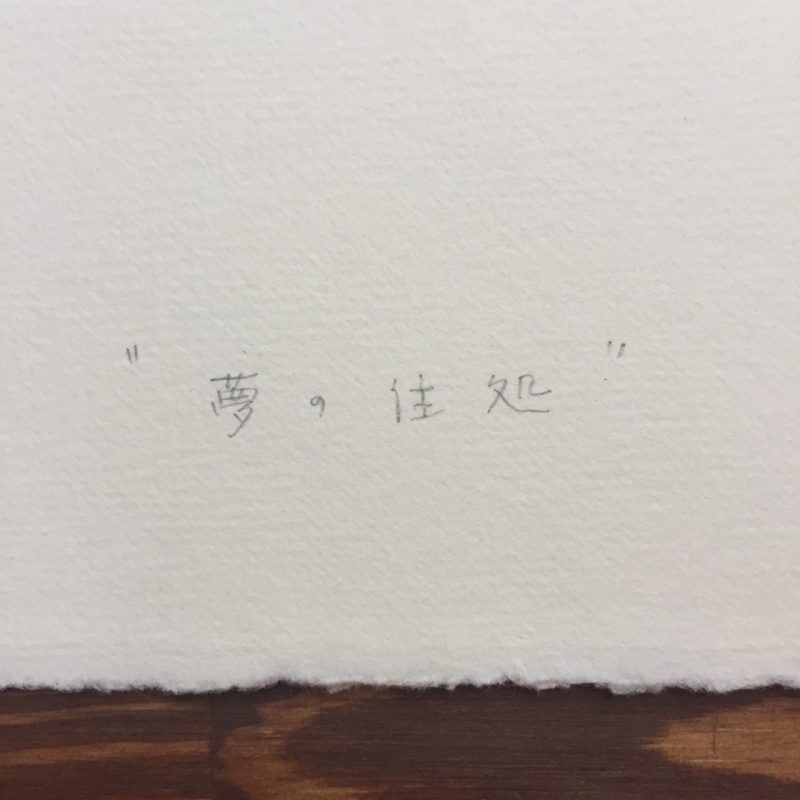 "夢の住処"